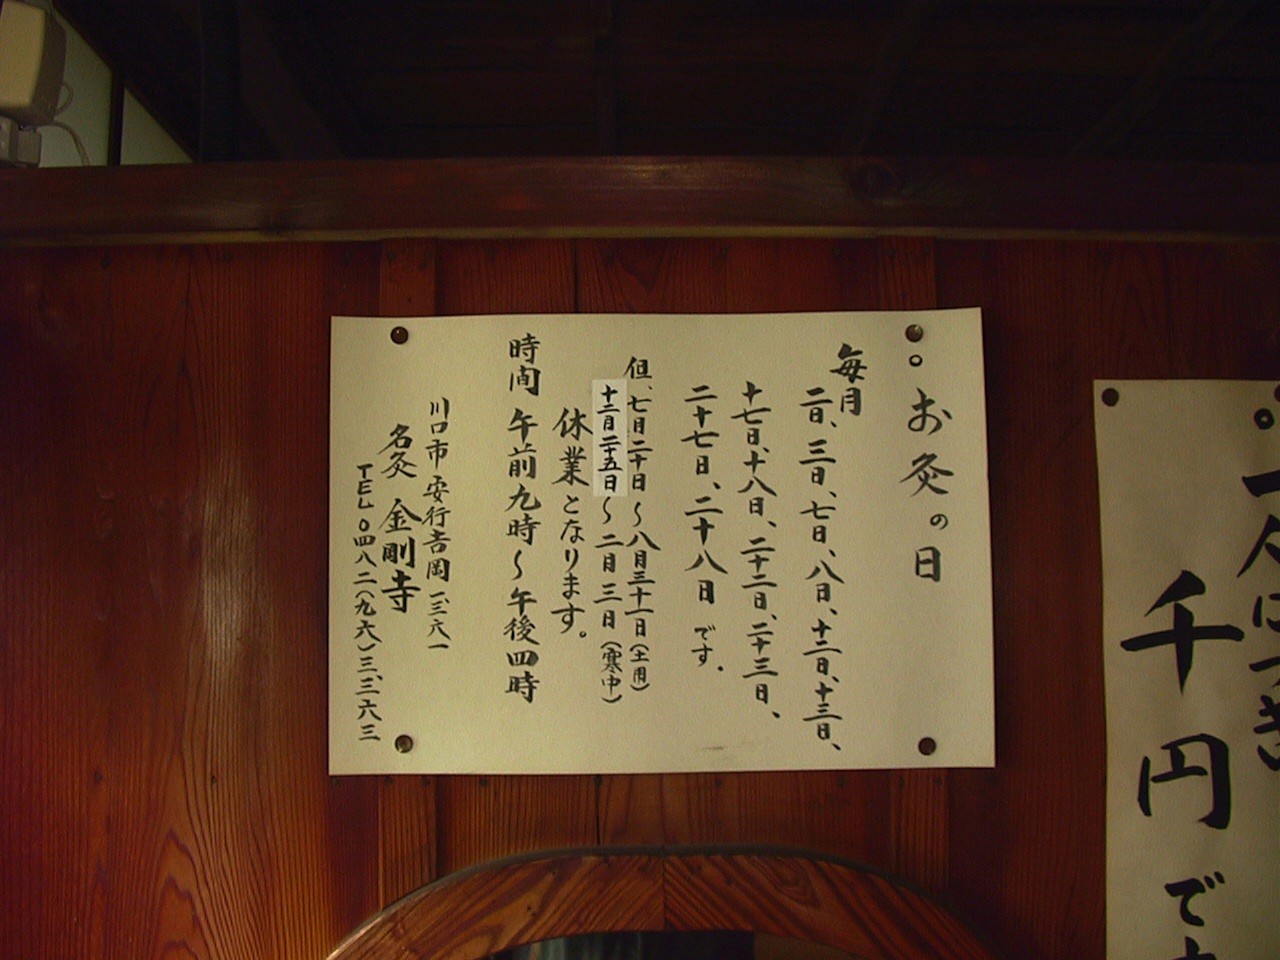 。お灸の日
毎月
二日、三日、七日、八日、十二日、十三日、
十七日、十八日、二十二日、二十三日、
二十七日、二十八日です.
但、七月二十日〜八月三十一日(土用)
十二月二十五日〜二月三日(寒中)
休業となります。
時間 午前九時〜午後四時
川口市安行吉岡一、三六一
名灸 金剛寺
TEL〇四八二(九六)三、三六三
千円です